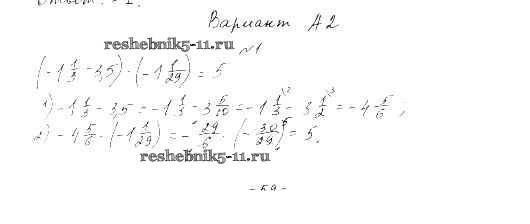 Ответ: -1.
Вариант А2
reshebnik5-11.ru
№1
(-1 1/3 - 3,5) · (-1 1/29) = 5
1) -1 1/3 - 3,5 = -1 1/3 - 3 5/10 = -1 1/3 \2 - 3 1/2 \3 = -4 5/6 ;
2) -4 5/6 · (-1 1/29) = - 29/6 · (- 30/29) 5 = 5.
reshebnik5-11.ru
- 59 -